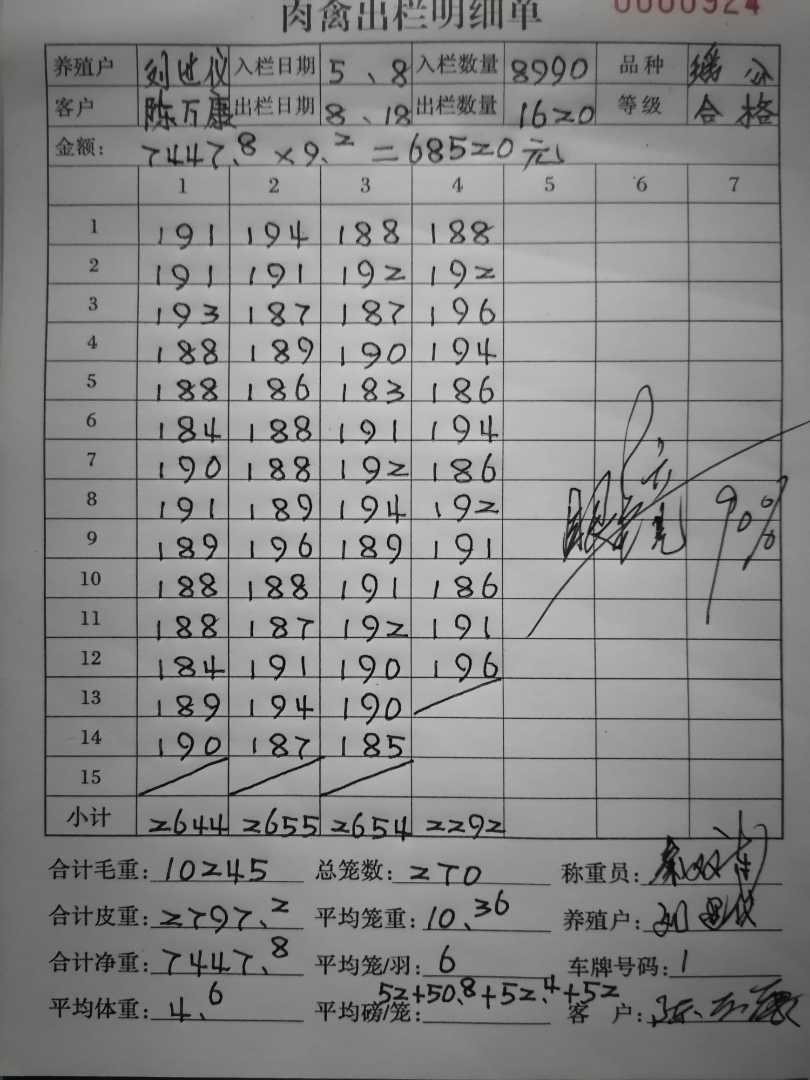 肉禽出栏明细单 0000924
养殖户 刘世仪 入栏日期 5、8 入栏数量 8990 品种
客户 陈万康 出栏日期 8、18 出栏数量 1620 等级 合格
金额: 7447.8×9.2=68520元
1 2 3 4 5 6 7
1 191 194 188 188
2 191 191 192 192
3 193 187 187 196
4 188 189 190 194
5 188 186 183 186
6 184 188 191 194
7 190 188 192 186
8 191 189 194 192
9 189 196 189 191
10 188 188 191 186
11 188 187 192 191
12 184 191 190 196
13 189 194 190
14 190 187 185
15
90%
小计 2644 2655 2654 2292
合计毛重: 10245 总笼数: 270 称重员:
合计皮重: 2797.2 平均笼重: 10.36 养殖户:
合计净重: 7447.8 平均笼/羽: 6 车牌号码: 1
平均体重: 4.6 平均磅/笼: 52+50.8+52.4+52 客户: